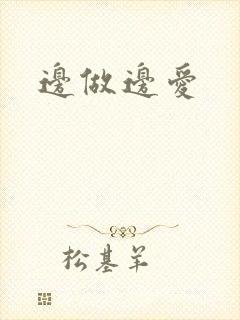 邊做邊愛
松基羊